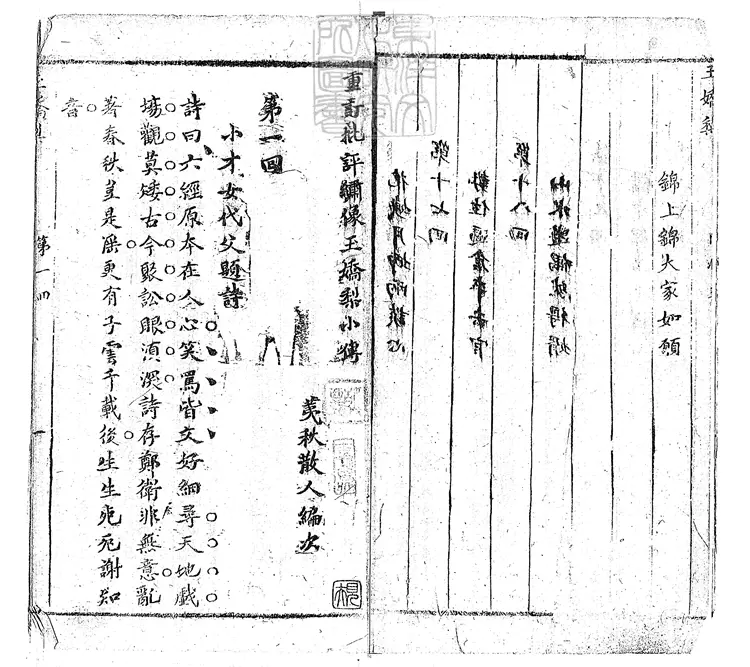 玉嬌梨
錦上錦大家如願
山水遊偶然得婿
第十八回
勢位逼倉卒去官
第十七回
花姨月姊兩談心
重訂批評繡像玉嬌梨小傳
荑秋散人編次
第一回
小才女代父題詩
詩曰六經原本在人心笑罵皆文好細尋天地戲
塲觀莫矮古今聚訟眼湏深詩存鄭衛非無意亂
著春秋豈是淫更有子雲千載後生生死死謝知
音
第一回
一